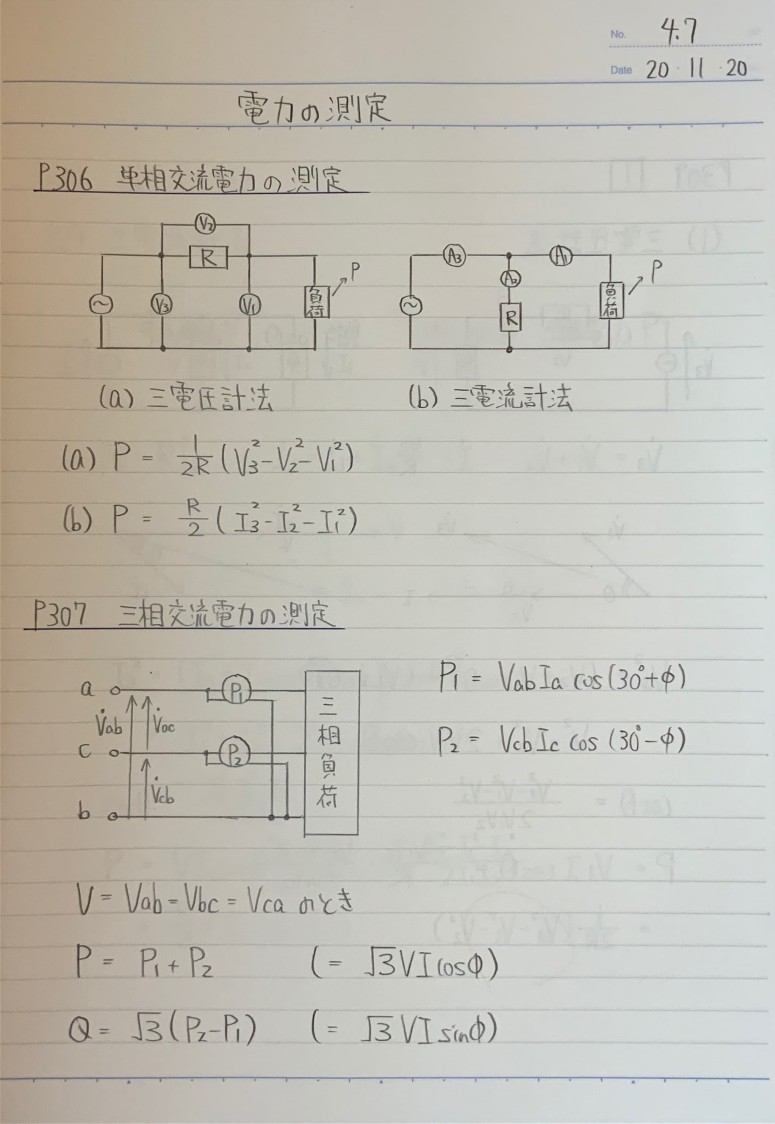 No. 4.7
Date 20・11・20
電力の測定
P306 単相交流電力の測定
V₂
R
V₃
V₁
負荷
P
A₃
A₁
A₂
R
負荷
P
(a) 三電圧計法
(b) 三電流計法
(a) P = 1/2R (V₃²-V₂²-V₁²)
(b) P = R/2 (I₃²-I₂²-I₁²)
P307 三相交流電力の測定
a
P₁
V̇ab
V̇ac
c
P₂
V̇cb
b
三相負荷
P₁ = VabIa cos(30°+φ)
P₂ = VcbIc cos(30°-φ)
V = Vab = Vbc = Vca のとき
P = P₁ + P₂ (= √3VIcosφ)
Q = √3(P₂-P₁) (= √3VIsinφ)